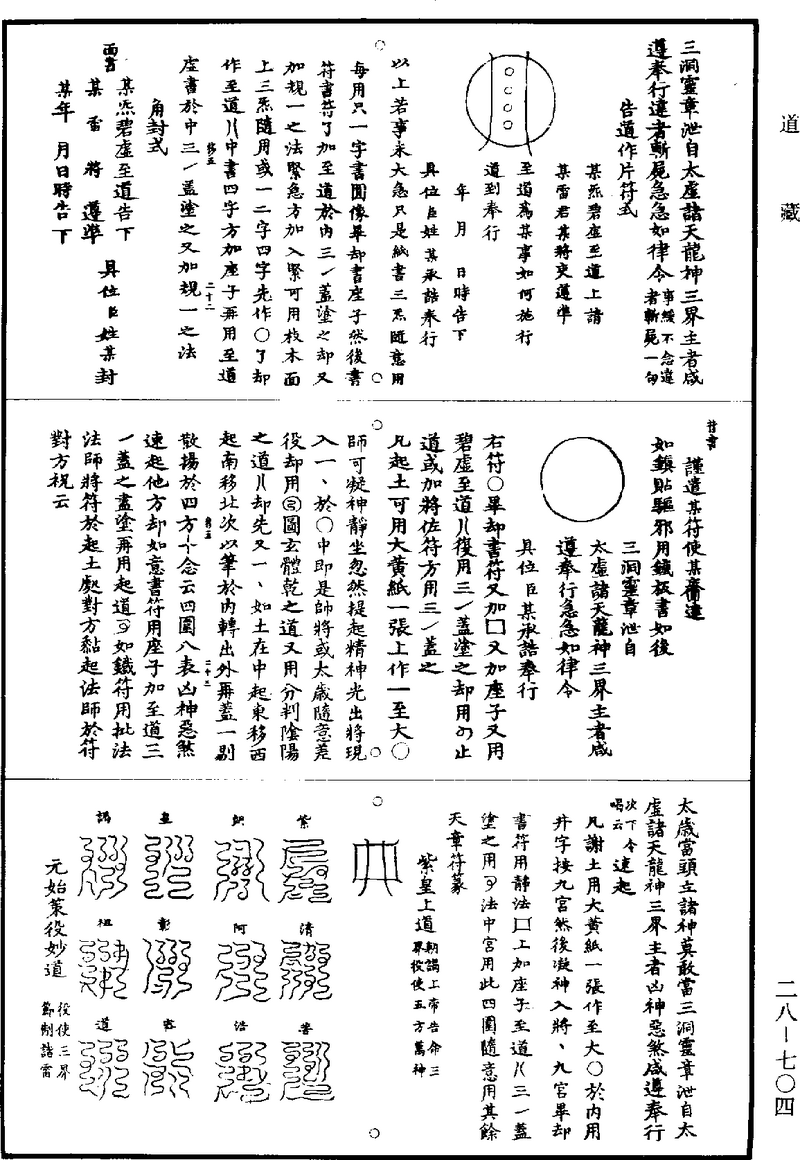 道藏
三洞靈章泄自太虛諸天龍神三界主者咸
遵奉行違者斬屍急急如律令事緩不念違者斬屍一句
告道作片符式
某炁碧虛至道上請
某雷君某將吏遵準
至道為某事如何施行
道到奉行
年 月 日時告下
具位臣姓某承誥奉行
以上若事未大急只是紙書三炁隨意用
每用只一字書圓像畢却書座子然後書
符書符了加至道於內三一蓋塗之却又
加規一之法緊急方加入緊可用枝木面
上三炁隨用或一二字四字先作〇了却
作至道〢中書四字方加座子再用至道
虛書於中三一蓋塗之又加規一之法
角封式
某炁碧虛至道告下
面書 某雷將遵準 具位臣姓某封
某年 月日時告下
背書
謹遣某符使某齎違
如鎮貼驅邪用鐵板書如後
三洞靈章泄自
太虛諸天龍神三界主者咸
遵奉行急急如律令
具位臣某承誥奉行
右符〇畢却書符又加囗又加座子又用
碧虛至道〢復用三一蓋塗之却用 止
道或加將佐符方用三一蓋之
凡起土可用大黃紙一張上作一至大〇
師可凝神靜坐忽然提起精神光出將現
入一、於〇中即是師將或太歲隨意差
役却用 圖玄體乾之道又用分判陰陽
之道〢却先又一、如土在中起東移西
起南移北次以筆於內轉出外再蓋一剔
散揚於四方 念云四圍八表凶神惡煞
速起他方却如意書符用座子加至道三
一蓋之畫塗再用起道 如鐵符用批法
法師將符於起土處對方黏起法師於符
對方祝云
太歲當頭立諸神莫敢當三洞靈章泄自太
虛諸天龍神三界主者凶神惡煞咸遵奉行
次下令喝云速起
凡謝土用大黃紙一張作至大〇於內用
井字接九宮然後凝神入將、九宮畢却
書符用靜法囗上加座子至道〢三一蓋
塗之用 法中宮用此四圍隨意用其餘
天章符篆
紫皇上道朝謁上帝告命三界役使五方萬神
紫 清 誓
敕 阿 浩
皇 彰
謁 祖 道
元始策役妙道役使三界節制諸雷
二八—七〇四